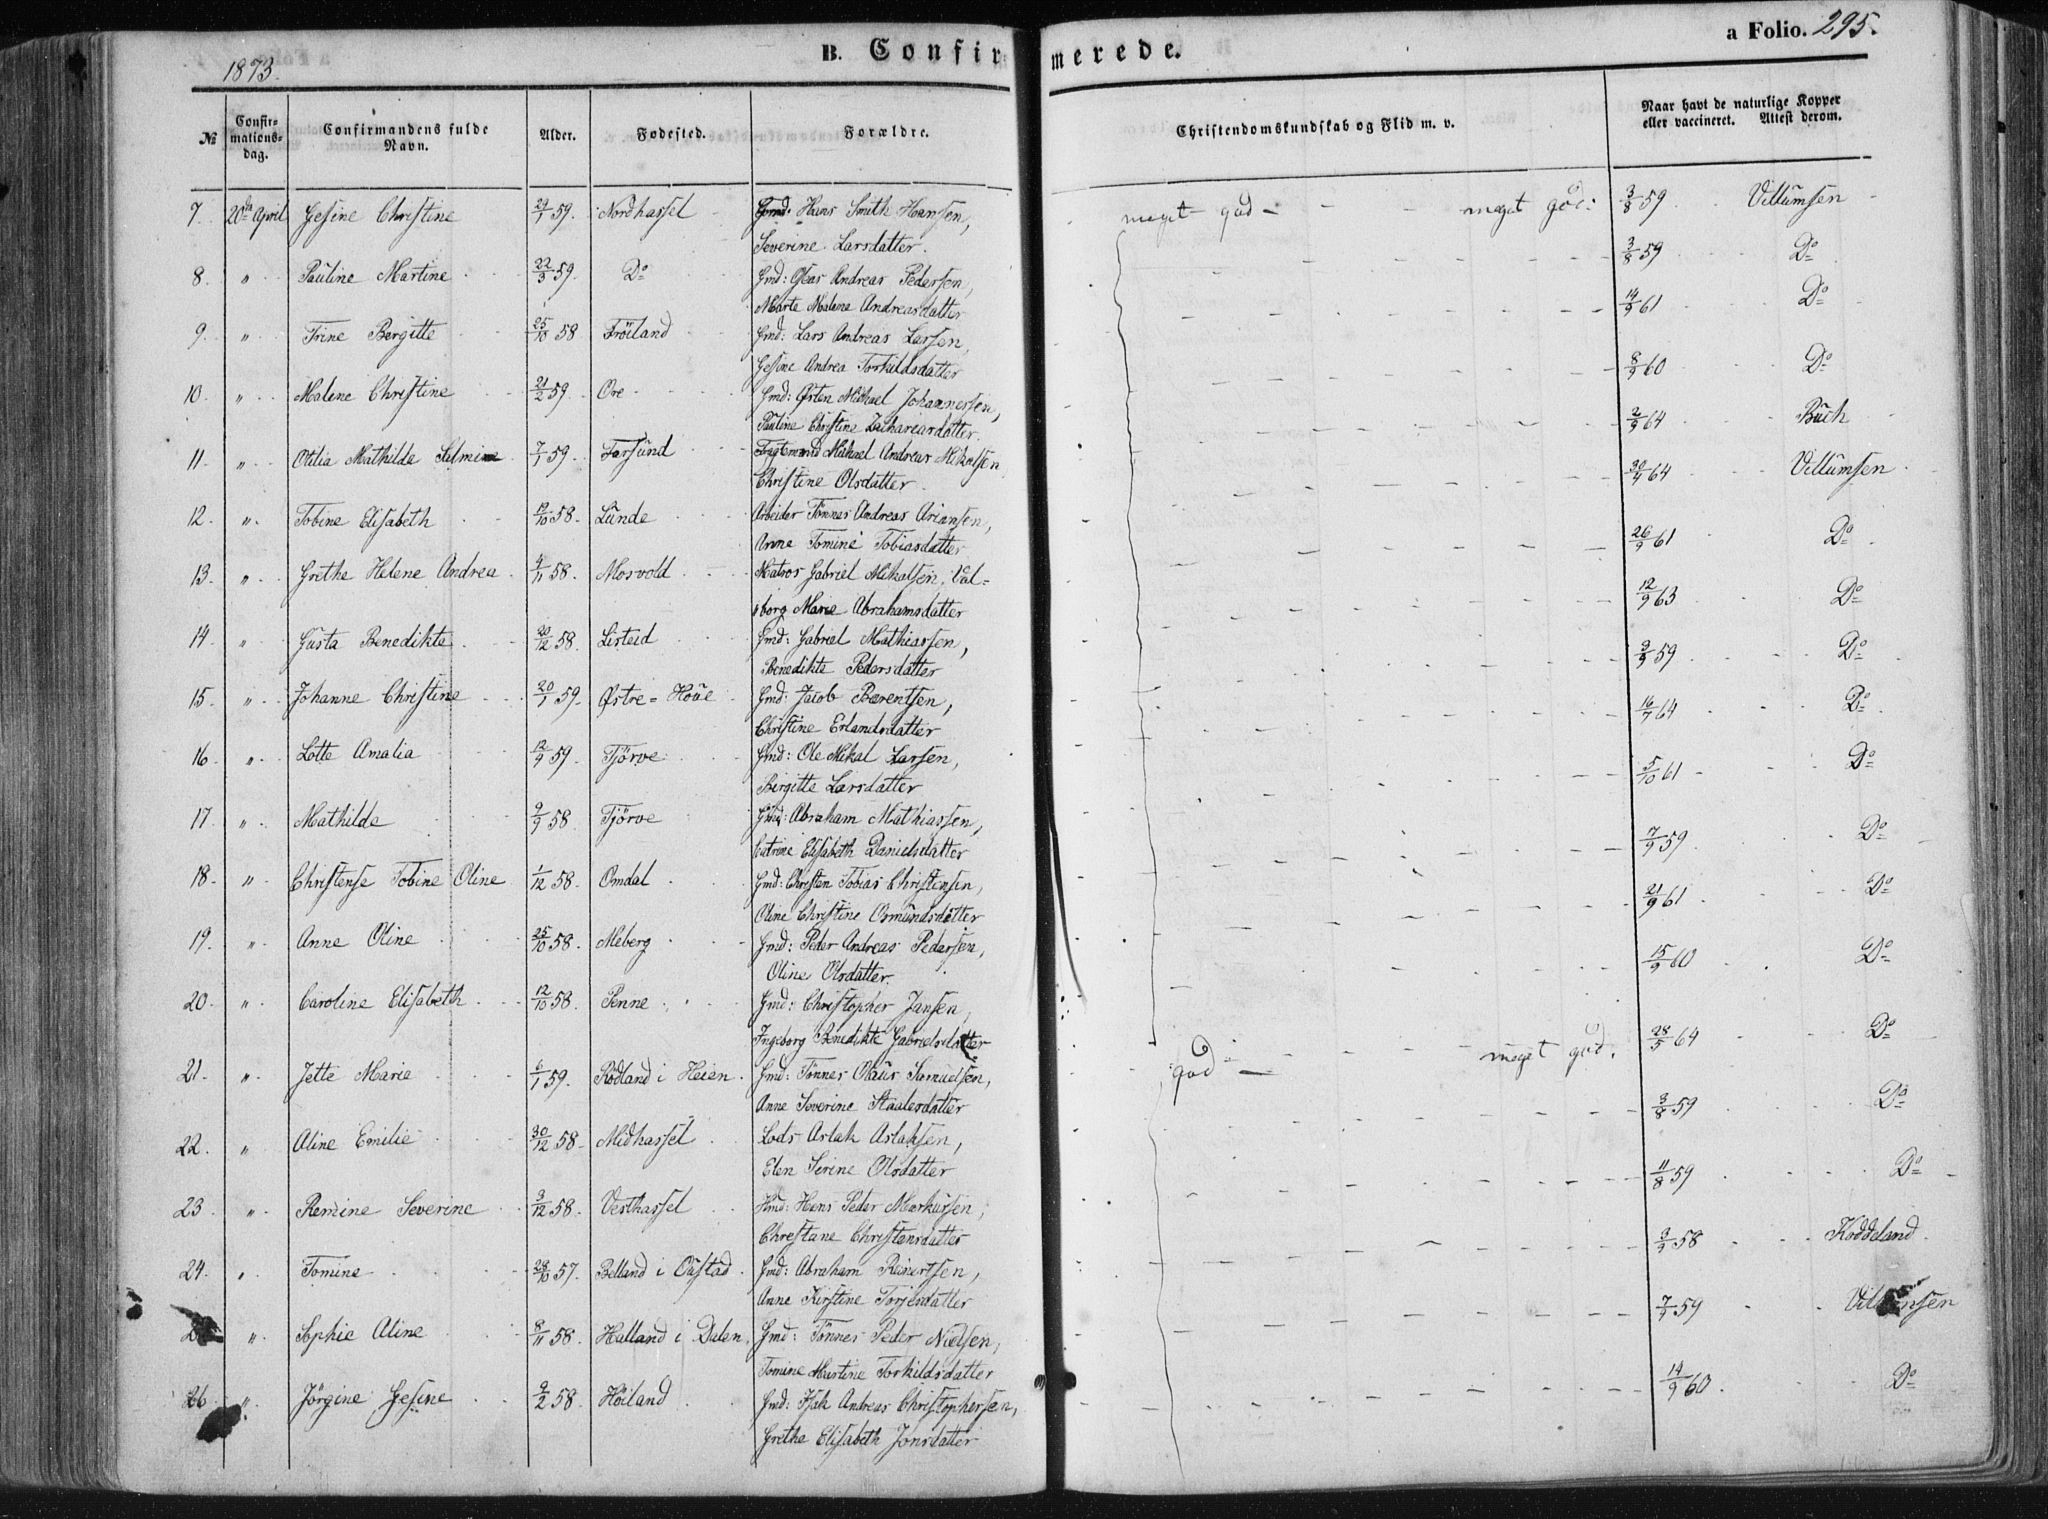 1873.
B. Confirmerede.
a Folio. 295.
№ Confirmations-dag. Confirmandens fulde Navn. Alder. Fødested. Forældre. Christendomskundskab og Flid m. v. Naar havt de naturlige Kopper eller vaccineret. Attest derom.
7. 20de April Gesine Christine 29/1 59. Nordhassel Gmd: Hans Smith Hansen, meget god - - - meget god: 3/8 59 Villumsen
Severine Larsdatter.
8. " Pauline Martine 22/3 59. Do Gmd: Osear Andreas Pedersen, 3/8 59 Do
Marte Malene Andreasdatter
9. " Trine Bergitte 25/10 58 Fröiland Gmd: Lars Andreas Larsen, 14/9 61 Do
Gesine Andrea Torkildsdatter
10. " Malene Christine 21/2 59. Ore Gmd: Østen Mikael Johannessen, 8/9 60 Do
Pauline Christine Zachariasdatter.
11. " Otilia Mathilde 7/1 59. Farsund Mikael Andreas Mikalsen 2/9 64 Buch
Christine Olsdatter.
12. " Tobine Elisabeth 12/10 58. Lunde Arbeider Tönnes Andreas Ariansen, 30/9 64 Villumsen
Anne Tomine Tobiasdatter
13. " Grethe Helene Andrea 4/11 58. Mosvold Matros Gabriel Mikalsen, Val- 26/9 61 Do
borg Marie Abrahamsdatter
14. " Gusta Benedikte 20/12 58. Listeid Gmd: Gabriel Mathiassen, 12/9 63 Do
Benedikte Pedersdatter
15. " Johanne Christine 20/1 59. Østre-Houe Gmd: Jacob Bærentsen, 9/9 59 Do
Christine Erlandsdatter
16. " Lotte Amalia 12/9 59. Tjörve Gmd: Ole Mikal Larsen, 16/7 64 Do
Birgitte Larsdatter
17. " Mathilde 9/9 58 Tjörve Gmd: Abraham Mathiassen, 5/10 61 Do
Catrine Elisabeth Danielsdatter
18. " Christense Tobine Oline 1/12 58. Omdal Gmd: Christen Tobias Christensen, 7/9 59 Do
Oline Christine Osmundsdatter
19. " Anne Oline 25/10 58. Meberg Gmd: Peder Andreas Pedersen, 21/9 61 Do
Oline Olsdatter.
20. " Caroline Elisabeth 12/10 58. Penne Gmd: Christopher Jansen, 15/9 60 Do
Ingeborg Benedikte Gabrielsdatter
21. " Jette Marie 6/1 59. Rödland i Heien Gmd: Tönnes Olaus Samuelsen, god - meget god. 28/5 64 Do
Anne Severine Staalesdatter
22. " Aline Emilie 30/12 58. Midhassel Lods Aslak Aslaksen, 3/8 59 Do
Elen Serine Olsdatter
23. " Remine Severine 3/12 58. Vesthassel Hmd: Hans Peder Markussen, 11/8 59 Do
Christane Christensdatter
24. " Tomine 28/10 57. Belland i Oustad Gmd: Abraham Reinertsen, 3/9 58 Koddeland
Anne Kirstine Torjesdatter
" Sophie Aline 8/11 58. Halland i Dalen Gmd: Tönnes Peder Nielsen, 7/9 59 Villumsen
Tomine Martine Torkildsdatter
26. " Jörgine Gesine 9/2 58. Höiland Gmd: Isak Andreas Christophersen, 14/9 60 Do
Grethe Elisabeth Jonsdatter